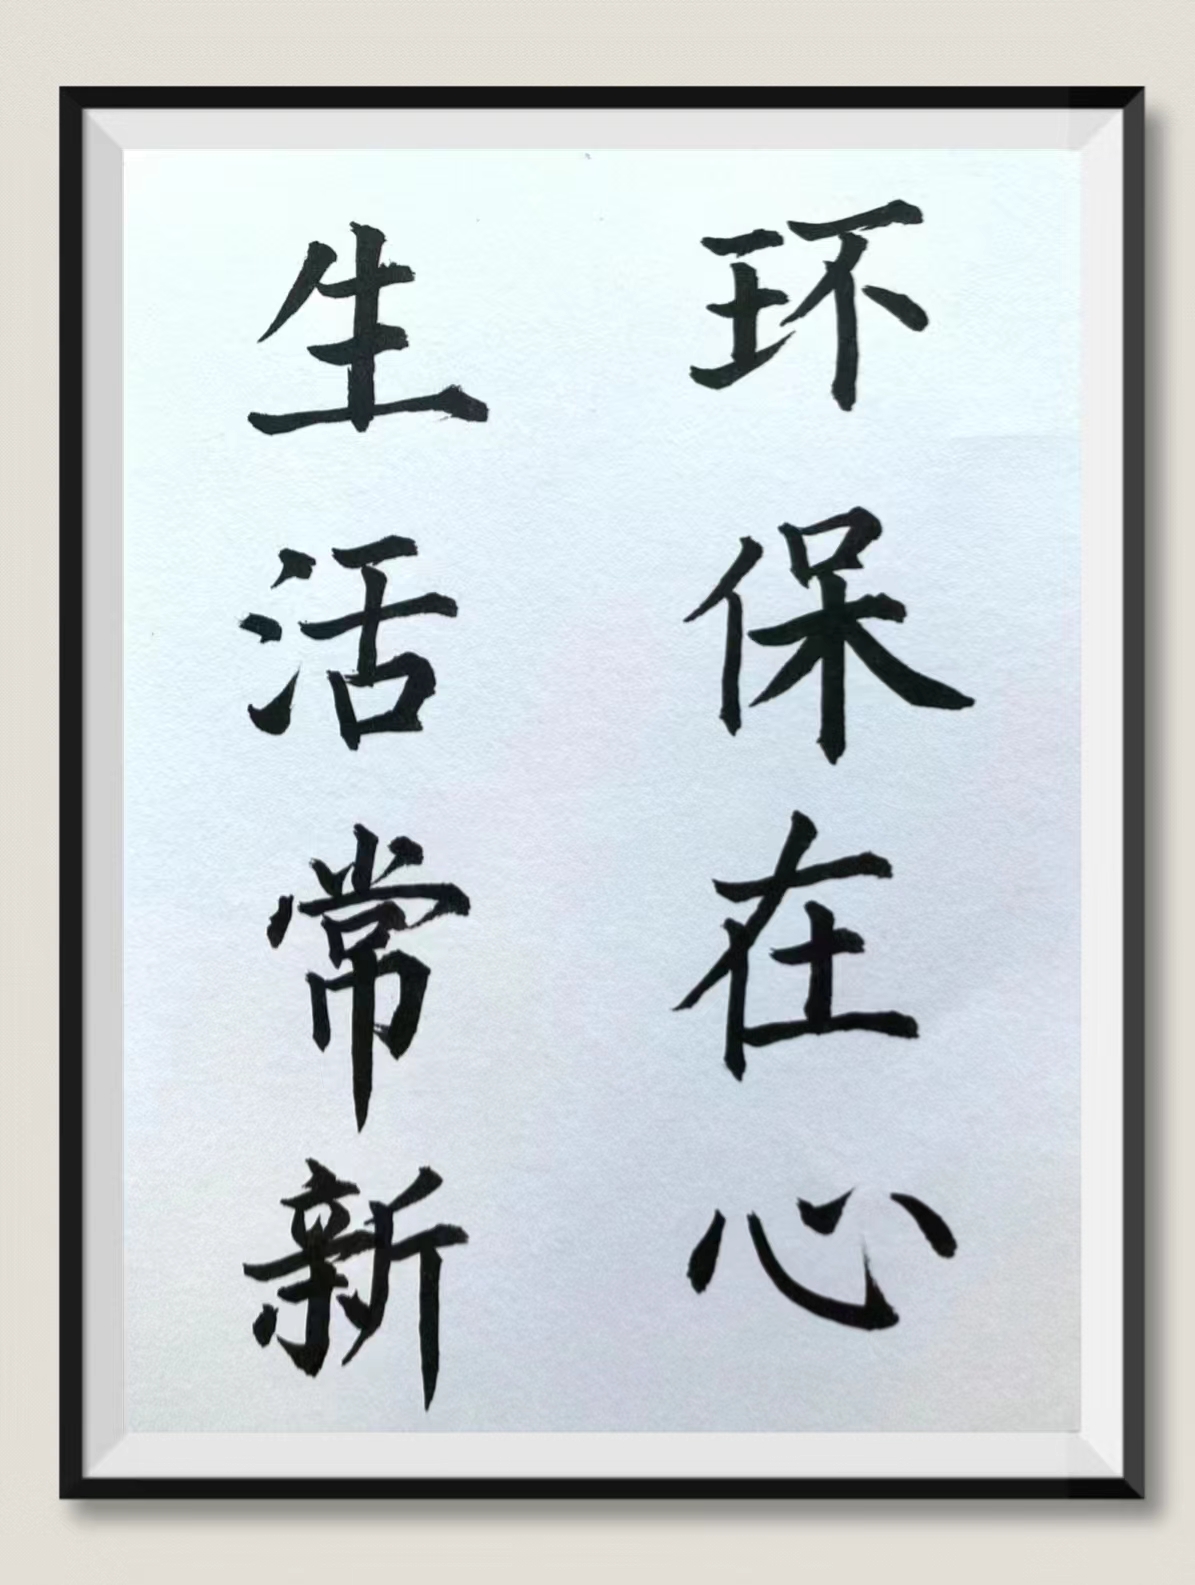 环保在心
生活常新